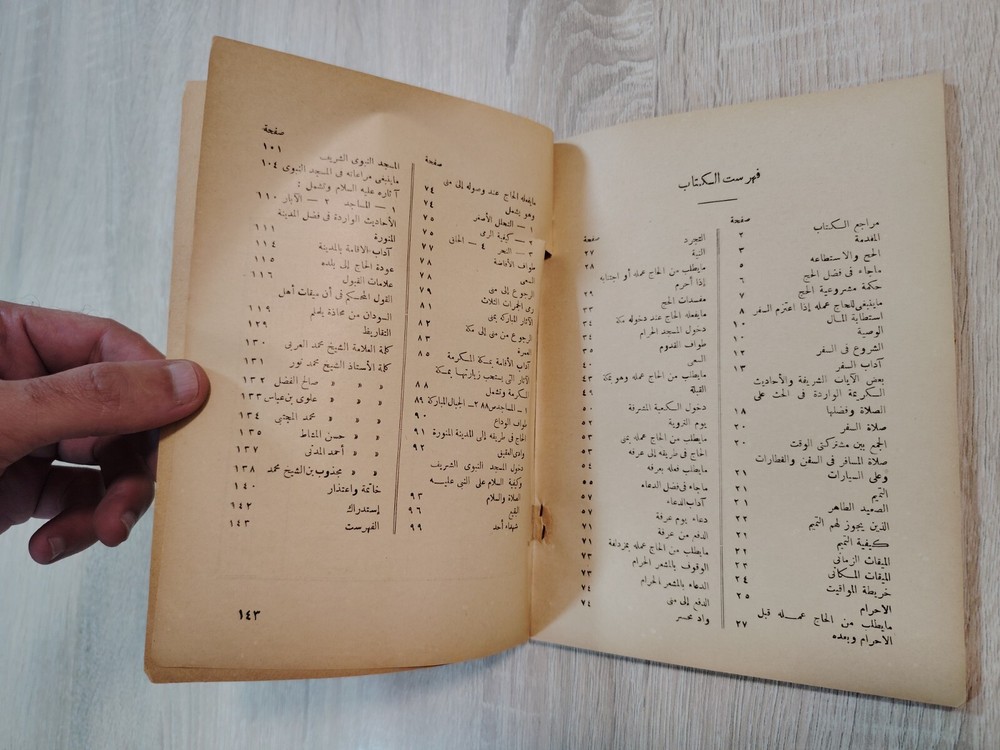 فهرست الكتاب
صفحة
مراجع الكتاب ٢
المقدمة ٣
الحج والاستطاعه ٥
ماجاء فى فضل الحج ٦
حكمة مشروعية الحج ٧
ماينبغى للحاج عمله إذا اعتزم السفر ٨
استطابة المال
الوصية ١٠
الشروع فى السفر ١٢
آداب السفر ١٣
بعض الآيات الشريفة والأحاديث
الكريمة الواردة فى الحث على
الصلاة وفضلها ١٨
صلاة السفر ٢٠
الجمع بين مشتركتى الوقت ٢٠
صلاة المسافر فى السفن والقطارات
وعلى السيارات ٢١
التيمم
الصعيد الطاهر ٢١
الذين يجوز لهم التيمم ٢٢
كيفية التيمم ٢١
الميقات الزمانى ٢١
الميقات المكانى ٢٣
خريطة المواقيت ٢٤
الاحرام ٢٥
مايطلب من الحاج عمله قبل
الاحرام وبعده ٢٧
صفحة
التجرد ٢٧
النية ٢٨
مايطلب من الحاج عمله أو اجتنابه
إذا أحرم ٢٩
مفسدات الحج ٣٣
مايفعله الحاج عند دخوله مكة ٣٤
دخول المسجد الحرام
طواف القدوم ٣٥
السعى ٤٠
مايطلب من الحاج عمله وهو بمكة ٤٣
القبلة ٤٩
دخول الكعبة المشرفة ٥٠
يوم التروية ٥٢
مايطلب من الحاج عمله بمنى ٥٣
الحاج فى طريقه إلى عرفه
مايطلب فعله بعرفه ٥٤
ماجاء فى فضل الدعاء ٥٧
آداب الدعاء ٥٧
دعاء يوم عرفة
الدفع من عرفة ٧١
مايطلب من الحاج عمله بمزدلفة ٧١
الوقوف بالمشعر الحرام ٧٣
الدعاء بالمشعر الحرام ٧٣
الدفع إلى منى ٧٤
واد محسر ٧٤
صفحة
مايفعله الحاج عند وصوله إلى منى
وهو يشمل ٧٤
١ — التحلل الأصغر ٧٤
٢ — كيفية الرمى ٧٥
٣ — النحر ٤ — الحلق ٧٥
طواف الأفاضة ٧٧
السعى ٧٨
الرجوع إلى منى ٧٨
رمى الجمرات الثلاث ٧٩
الآثار المباركه بمنى ٨١
الرجوع من منى إلى مكة ٨٢
العمرة ٨٣
آداب الأقامة بمكة المكرمة ٨٥
الآثار التى يستحب زيارتها بمكة
المكرمة وتشمل ٨٨
١ — المساجد ٨٨ ٢ — الجبال المباركة ٨٩
طواف الوداع ٩٠
الحاج فى طريقه إلى المدينة المنورة ٩١
وادى العقيق ٩٢
دخول المسجد النبوى الشريف
وكيفية السلام على النبى عليه
الصلاة والسلام ٩٣
البقيع ٩٦
شهداء أحد ٩٩
صفحة
المسجد النبوى الشريف ١٠١
ماينبغى مراعاته فى المسجد النبوى ١٠٤
آثاره عليه السلام وتشمل :
١ — المساجد ٢ — الآبار ١١٠
الأحاديث الواردة فى فضل المدينة
المنورة ١١١
آداب الاقامة بالمدينة ١١٤
عودة الحاج إلى بلده ١١٥
علامات القبول ١١٦
القول المحكم فى أن ميقات أهل
السودان من محاذاة يلملم ١١٩
التقاريظ ١٢٩
كلمة العلامة الشيخ محمد العربى ١٣٠
كلمة الأستاذ الشيخ محمد نور ١٣١
» » » صالح الفضل ١٣٢
» » » علوى بن عباس ١٣٣
» » » محمد المجتبى ١٣٤
» » » حسن المشاط ١٣٥
» » » أحمد المدنى ١٣٧
» » » مجذوب بن الشيخ محمد ١٣٨
خاتمة واعتذار ١٤٠
إستدراك ١٤٢
الفهرست ١٤٣
١٤٣